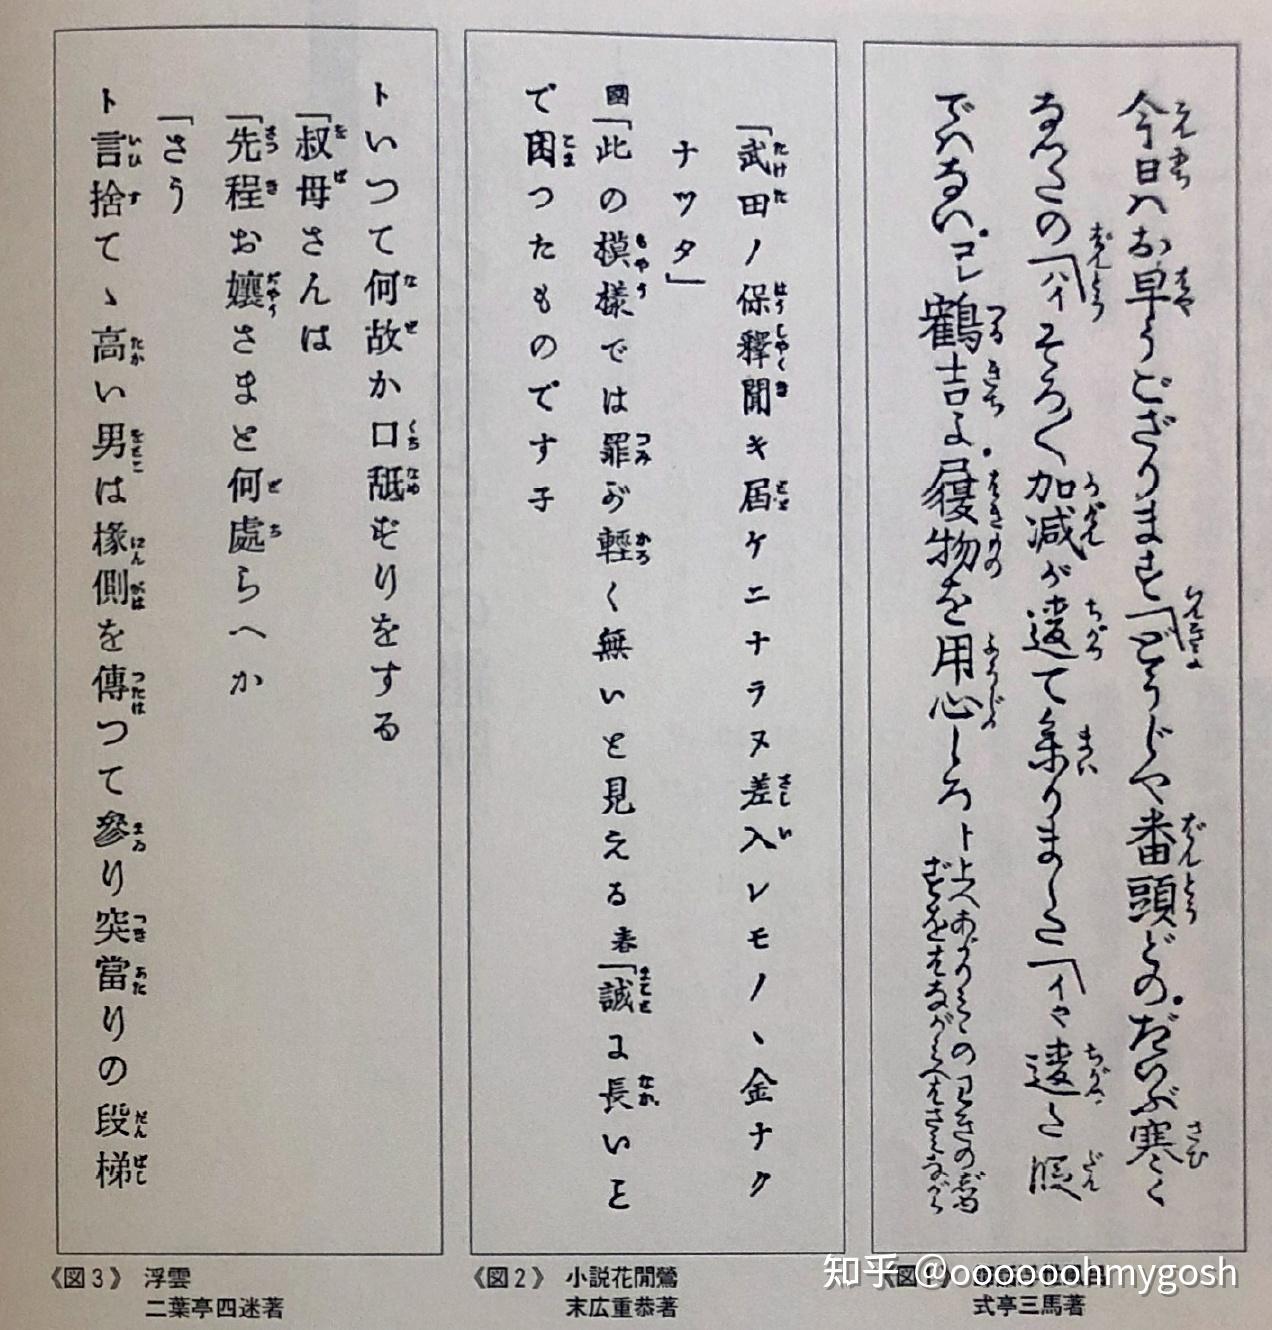 今日ハお早うござりますト「どうじや番頭どの。だいぶ寒く
なつたの「ハイそろ〱加減が違て参りました「イや違た段
でハない。コレ鶴吉よ。履物を用心しろ
「武田ノ保釋聞キ届ケニナラヌ差入レモノヽ金ナク
ナツタ」
國「此の模様では罪が輕く無いと見える春「誠に長いこと
で困つたものです子
トいつて何故か口舐ずりをする
「叔母さんは
「先程お孃さまと何處らへか
「さう
ト言捨てゝ高い男は椽側を傳つて參り突當りの段梯
《図3》 浮雲
二葉亭四迷著
《図2》 小説花間鶯
末広重恭著
式亭三馬著
知乎 @ooooooohmygosh